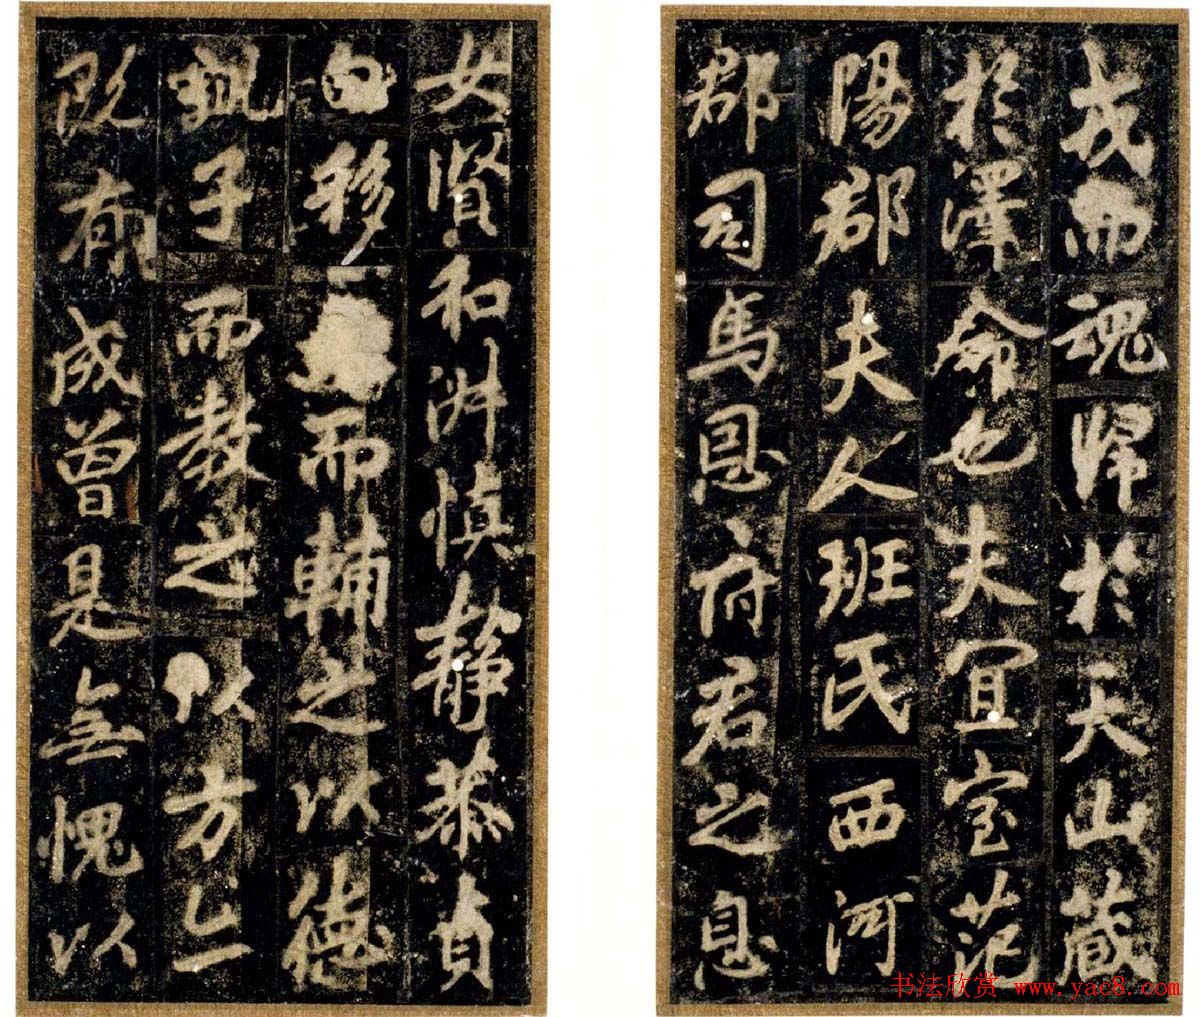 戎而魂歸於天山藏
於澤命也夫宜室范
陽郡夫人班氏西河
郡司馬恩府君之息
女賢和淑慎靜恭貞
白移而輔之以德
子而教之以方亡
既有成曾是無愧以
书法欣赏 www.yac8.com